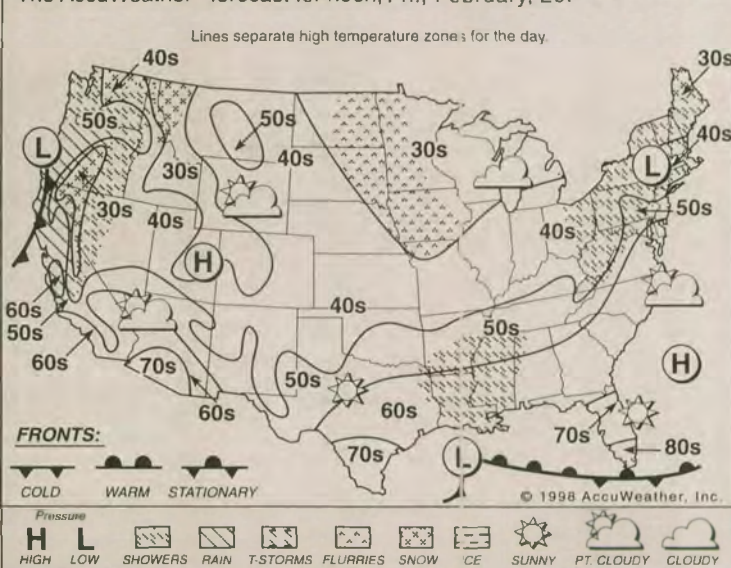 The AccuWeather forecast for noon, Fri., February, 20.
Lines separate high temperature zones for the day.
40s
30s
50s
50s
40s
30s
40s
L
L
30s
30s
40s
50s
40s
H
40s
60s
50s
60s
50s
70s
50s
60s
60s
H
70s
80s
70s
L
FRONTS:
COLD WARM STATIONARY
© 1998 AccuWeather, Inc.
Pressure
H L
HIGH LOW SHOWERS RAIN T-STORMS FLURRIES SNOW ICE SUNNY PT. CLOUDY CLOUDY